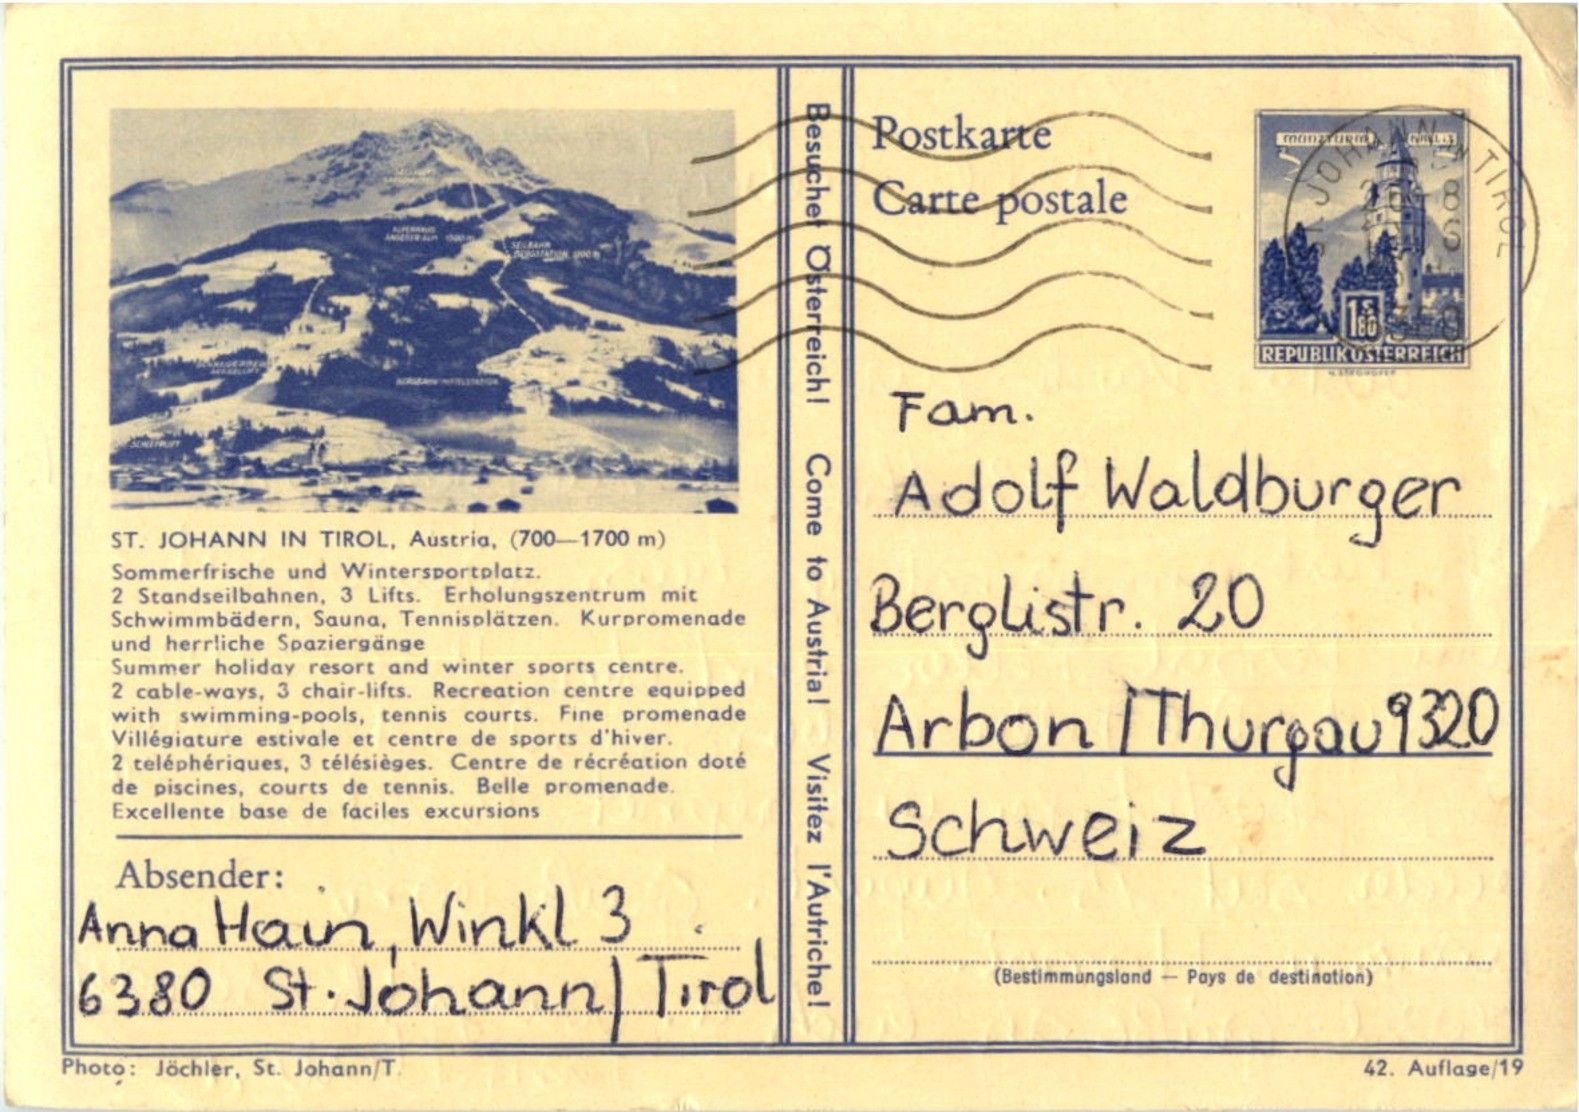 ST. JOHANN IN TIROL, Austria, (700—1700 m)
Sommerfrische und Wintersportplatz.
2 Standseilbahnen, 3 Lifts. Erholungszentrum mit
Schwimmbädern, Sauna, Tennisplätzen. Kurpromenade
und herrliche Spaziergänge
Summer holiday resort and winter sports centre.
2 cable-ways, 3 chair-lifts. Recreation centre equipped
with swimming-pools, tennis courts. Fine promenade
Villégiature estivale et centre de sports d'hiver.
2 teléphériques, 3 télésièges. Centre de récréation doté
de piscines, courts de tennis. Belle promenade.
Excellente base de faciles excursions
Absender:
Anna Hain, Winkl 3
6380 St. Johann/Tirol
Photo: Jöchler, St. Johann/T.
Besuchet Österreich! Come to Austria! Visitez l'Autriche!
Postkarte
Carte postale
ST. JOHANN IN TIROL
1.80
REPUBLIK ÖSTERREICH
Fam.
Adolf Waldburger
Berglistr. 20
Arbon/Thurgau 9320
Schweiz
(Bestimmungsland — Pays de destination)
42. Auflage/19